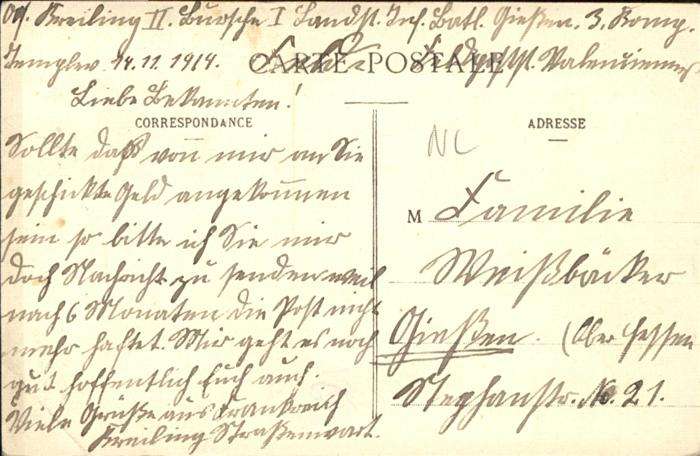 Kreiling II. Bursche I Landst. Inf. Batl. Gießen. 3. Komp.
Templev 14.11.1914. Feldpstst. Valenciennes
CARTE POSTALE
Liebe Bekannten!
CORRESPONDANCE
Sollte daß von mir an Sie
geschickte Geld angekommen
sein so bitte ich Sie mir
doch Nachricht zu senden weil
nach 6 Monaten die Post nicht
mehr haftet. Mir geht es noch
gut hoffentlich Euch auch.
Viele Grüße aus Frankreich
Kreiling Straßenwart.
ADRESSE
NL
M Familie
Weißbäcker
Gießen. (Ober Hessen
Stephanstr. No. 21.